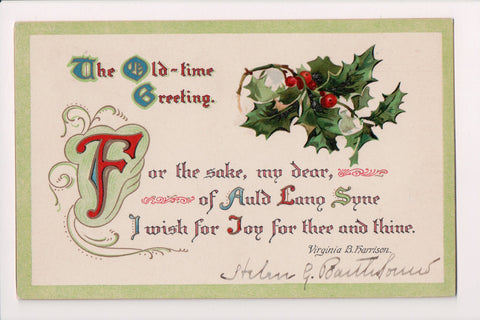 The Old-time
Greeting.
For the sake, my dear,
of Auld Lang Syne
I wish for Joy for thee and thine.
Virginia B. Harrison.
Helen G.